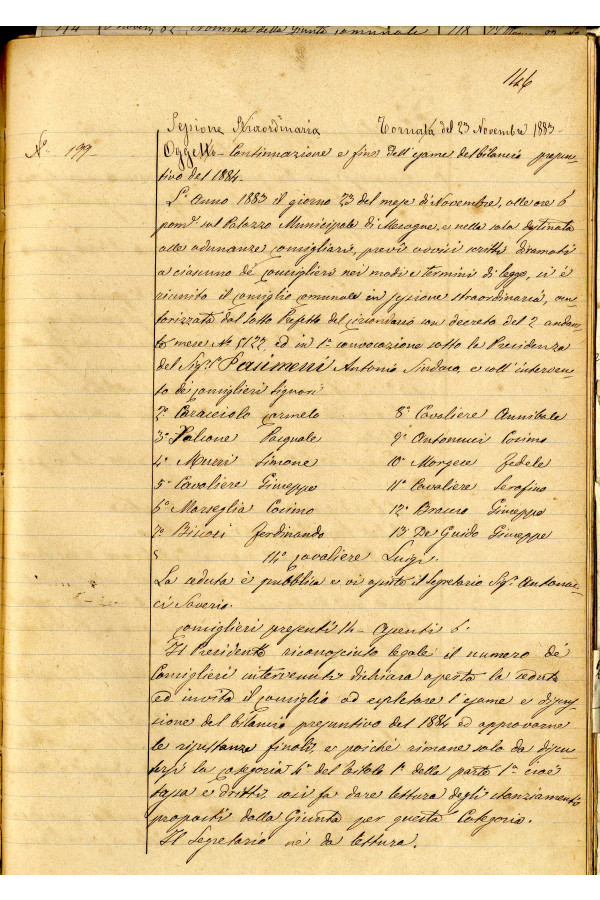 Nomina della Giunta comunale 118
146
Sessione Straordinaria Tornata del 23 Novembre 1883-
N.° 199- Oggetto- Continuazione e fine dell'esame del bilancio presun-
tivo del 1884.
L'Anno 1883 il giorno 23 del mese di Novembre, alle ore 6
pom: nel Palazzo Municipale di Mesagne, e nella sala destinata
alle adunanze consigliari, previi avvisi scritti diramati
a ciascuno de' consiglieri nei modi e termini di legge, si è
riunito il consiglio comunale in sessione straordinaria, au-
torizzata dal sotto Prefetto del circondario con decreto del 2 andan-
te mese N.° 8122, ed in 1ª convocazione sotto la Presidenza
del Sig.r Antonio Sindaco, e coll'interven-
to de' consiglieri signori
2° Caracciolo Carmelo 8° Cavaliere Annibale
3° Falcone Pasquale 9° Antonucci Cosimo
4° Murri Simone 10° Morgese Fedele
5° Cavaliere Giuseppe 11° Cavaliere Serafino
6° Marseglia Cosimo 12° Braccio Giuseppe
7° Ferdinando 13° De Guido Giuseppe
14° Cavaliere Luigi.
La seduta è pubblica e vi assiste il Segretario Sig. Antonuc-
ci Saverio.
Consiglieri presenti 14- Assenti 6.
Il Presidente riconosciuto legale il numero de'
Consiglieri intervenuti dichiara aperta la seduta
ed invita il consiglio ad espletare l'esame e discus-
sione del bilancio presuntivo del 1884 ed approvarne
le risultanze finali, e poichè rimane solo da discu-
tersi la categoria 4ª del titolo 1° della parte 1ª cioè
tasse e diritti, così fa dare lettura degli stanziamenti
proposti dalla Giunta per questa Categoria.
Il Segretario ne dà lettura.